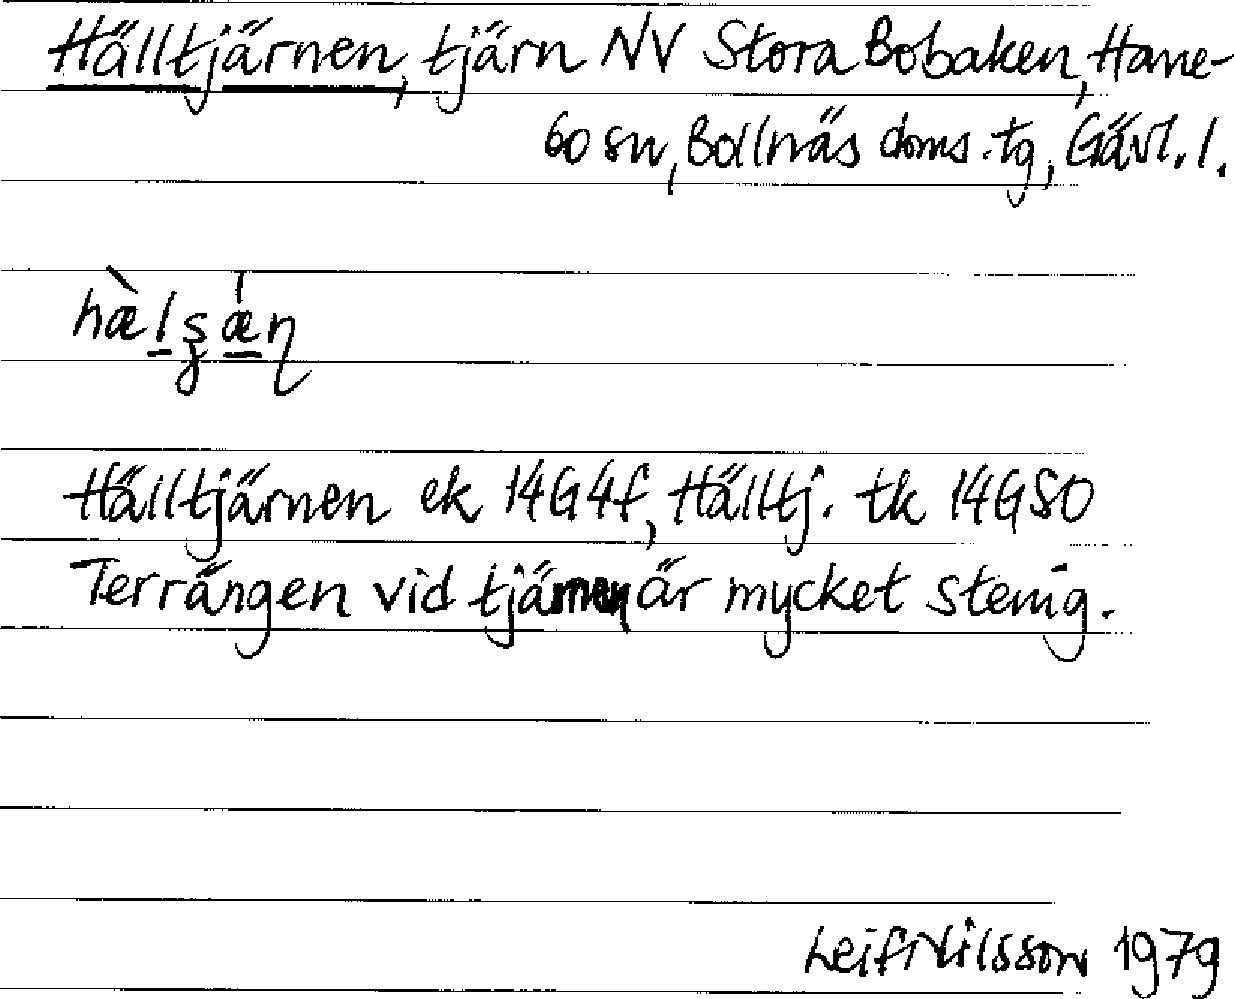 Hälltjärnen, tjärn NV Stora Bobaken, Hane-
bo sn, Bollnäs doms.tg, Gävl.l.
Hälltjärnen ek 14G4f, Hälltj. tk 14GSO
Terrängen vid tjärnen är mycket stenig.
Leif Nilsson 1979